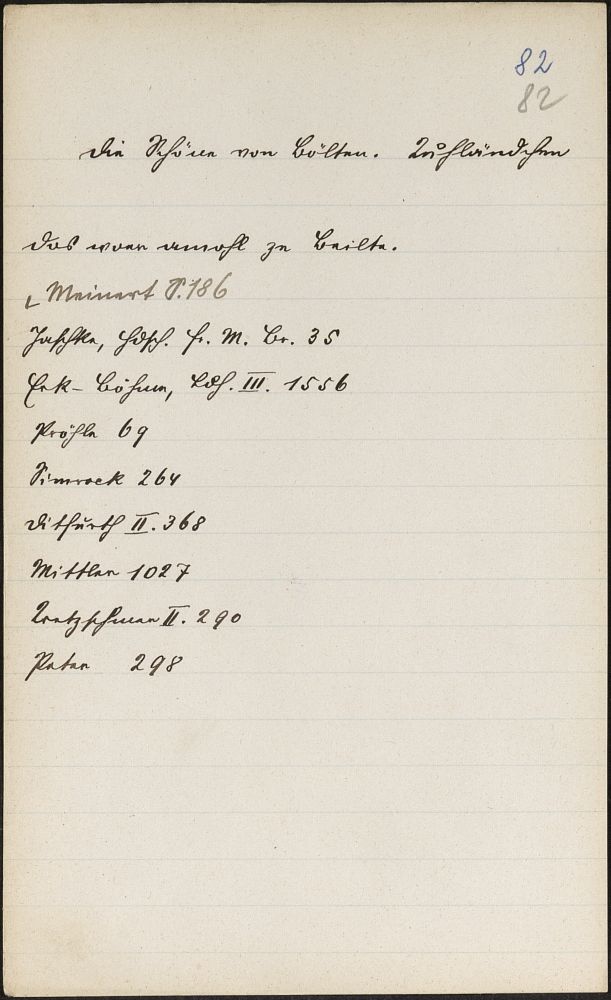 82
82
Die Schöne von Bölten. Kuhländchen
Das woar amohl zu Beilte.
Meinert S. 186
Jaschke, Hdsch. fr. M. Br. 35
Erk-Böhme, Ldh. III. 1556
Pröhle 69
Simrock 264
Ditfurth II. 368
Mittler 1027
Kretzschmer II. 290
Peter 298